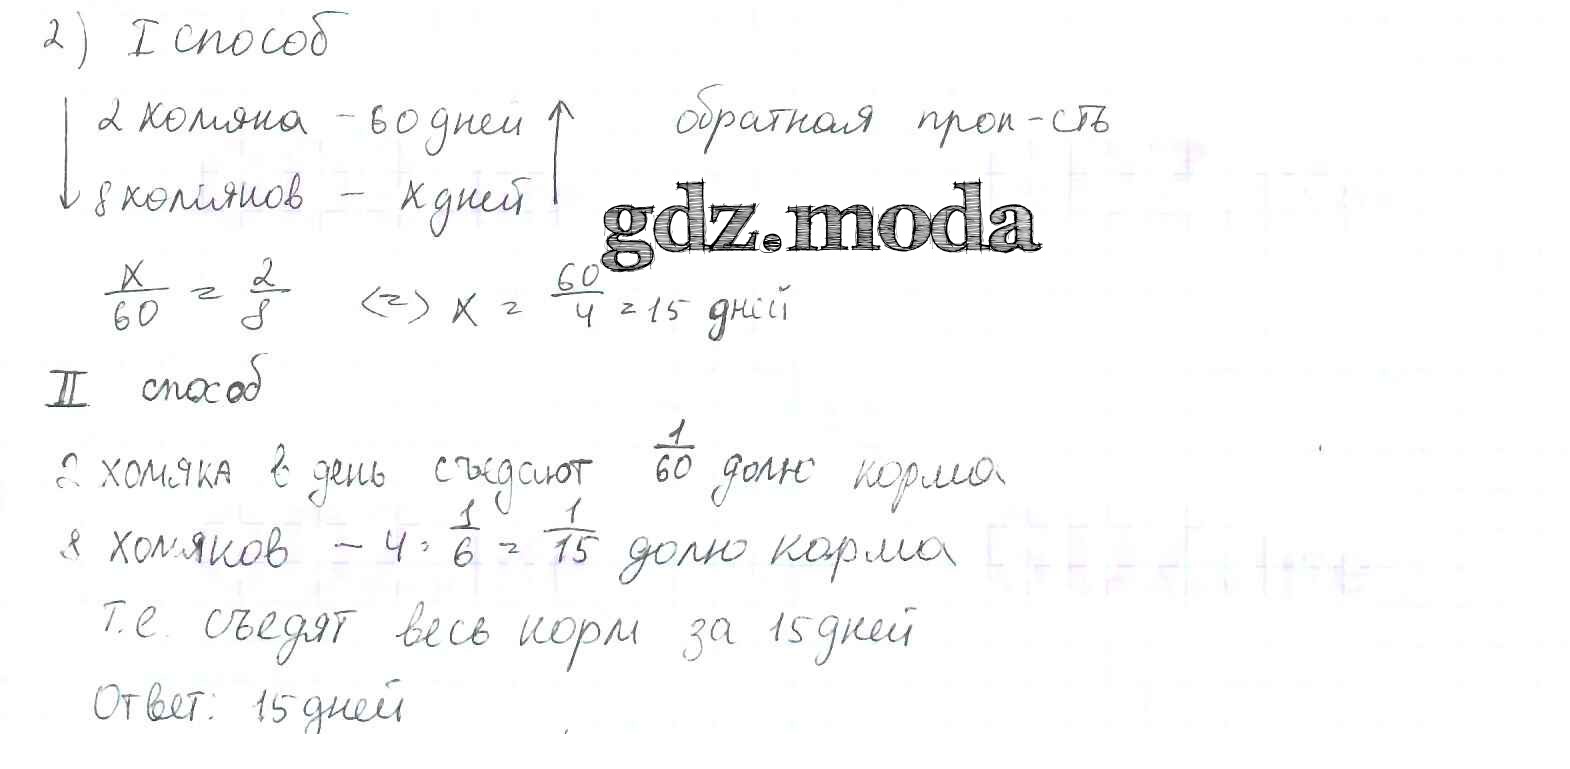 2) I способ
2 хомяка - 60 дней обратная проп-сть
8 хомяков - x дней
gdz.moda
x/60 = 2/8 <=> x = 60/4 = 15 дней
II способ
2 хомяка в день съедают 1/60 долю корма
8 хомяков - 4 · 1/6 = 1/15 долю корма
т.е. съедят весь корм за 15 дней
Ответ: 15 дней